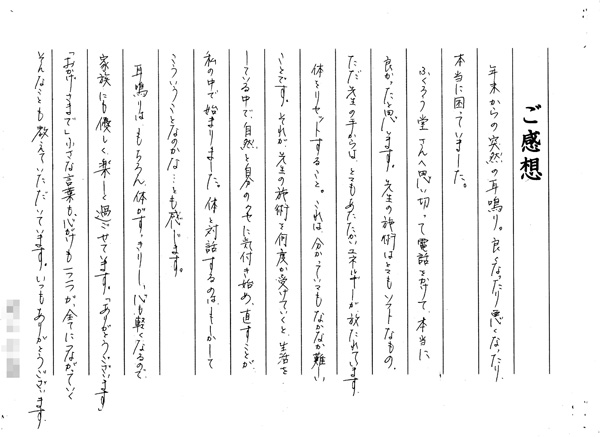 ご感想
年末からの突然の耳鳴り。良くなったり悪くなったり
本当に困っていました。
ふくろう堂さんへ思い切って電話をかけて、本当に
良かったと思います。先生の施術はとてもソフトなもの、
ただ先生の手からは、とてもあたたかいエネルギーが放たれています。
体をリセットすること。これは、分かっていてもなかなか難しい
ことです。それが先生の施術を何度か受けていくと、生活を
している中で、自然と自分のクセに気付き始め、直すことが
私の中で始まりました。体と対話するのは、もしかして
こういうことなのかな…とも感じます。
耳鳴りはもちろん、体がすっきりし、心も軽くなるので
家族にも優しく、楽しく過ごせています。「ありがとうございます」
「おかげさまで」小さな言葉も、心がけも一つ一つが、全てにつながっていく
そんなことも教えていただいています。いつもありがとうございます。